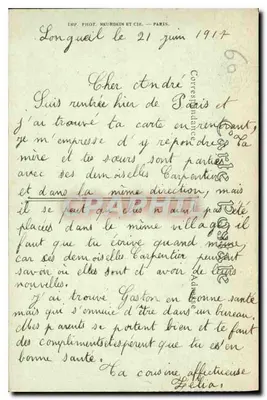 IMP. PHOT. NEURDEIN ET CIE. — PARIS.
Longueil le 21 juin 1914
Cher André
Suis rentrée hier de Paris et
j'ai trouvé ta carte en rentrant,
je m'empresse d'y répondre. La
mère et les sœurs sont parties
avec ses demoiselles Carpentier
et dans la même direction, mais
il se peut qu'elles n'aient pas été
placées dans le même village il
faut que tu écrive quand même,
car ses demoiselles Carpentier peuvent
savoir où elles sont et avoir de leurs
nouvelles.
j'ai trouvé Gaston en bonne santé
mais qui s'ennuie d'être dans un bureau.
Mes parents se portent bien et te font
des compliments et espèrent que tu es en
bonne santé.
Ta cousine affectueuse
Zélia.
Correspondance
Adresse
CARTE POSTALE